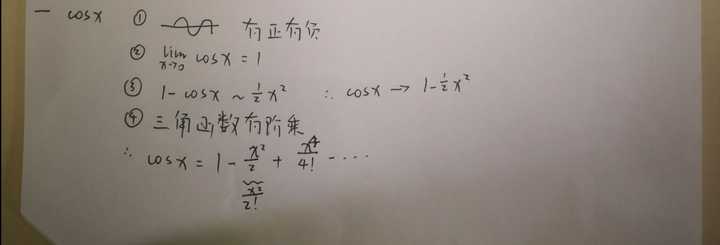 一 cosx ① 有正有负
② lim x→0 cosx = 1
③ 1-cosx ~ 1/2 x² ∴ cosx → 1-1/2 x²
④ 三角函数有阶乘
∴ cosx = 1 - x²/2 + x⁴/4! - ····
x²/2!